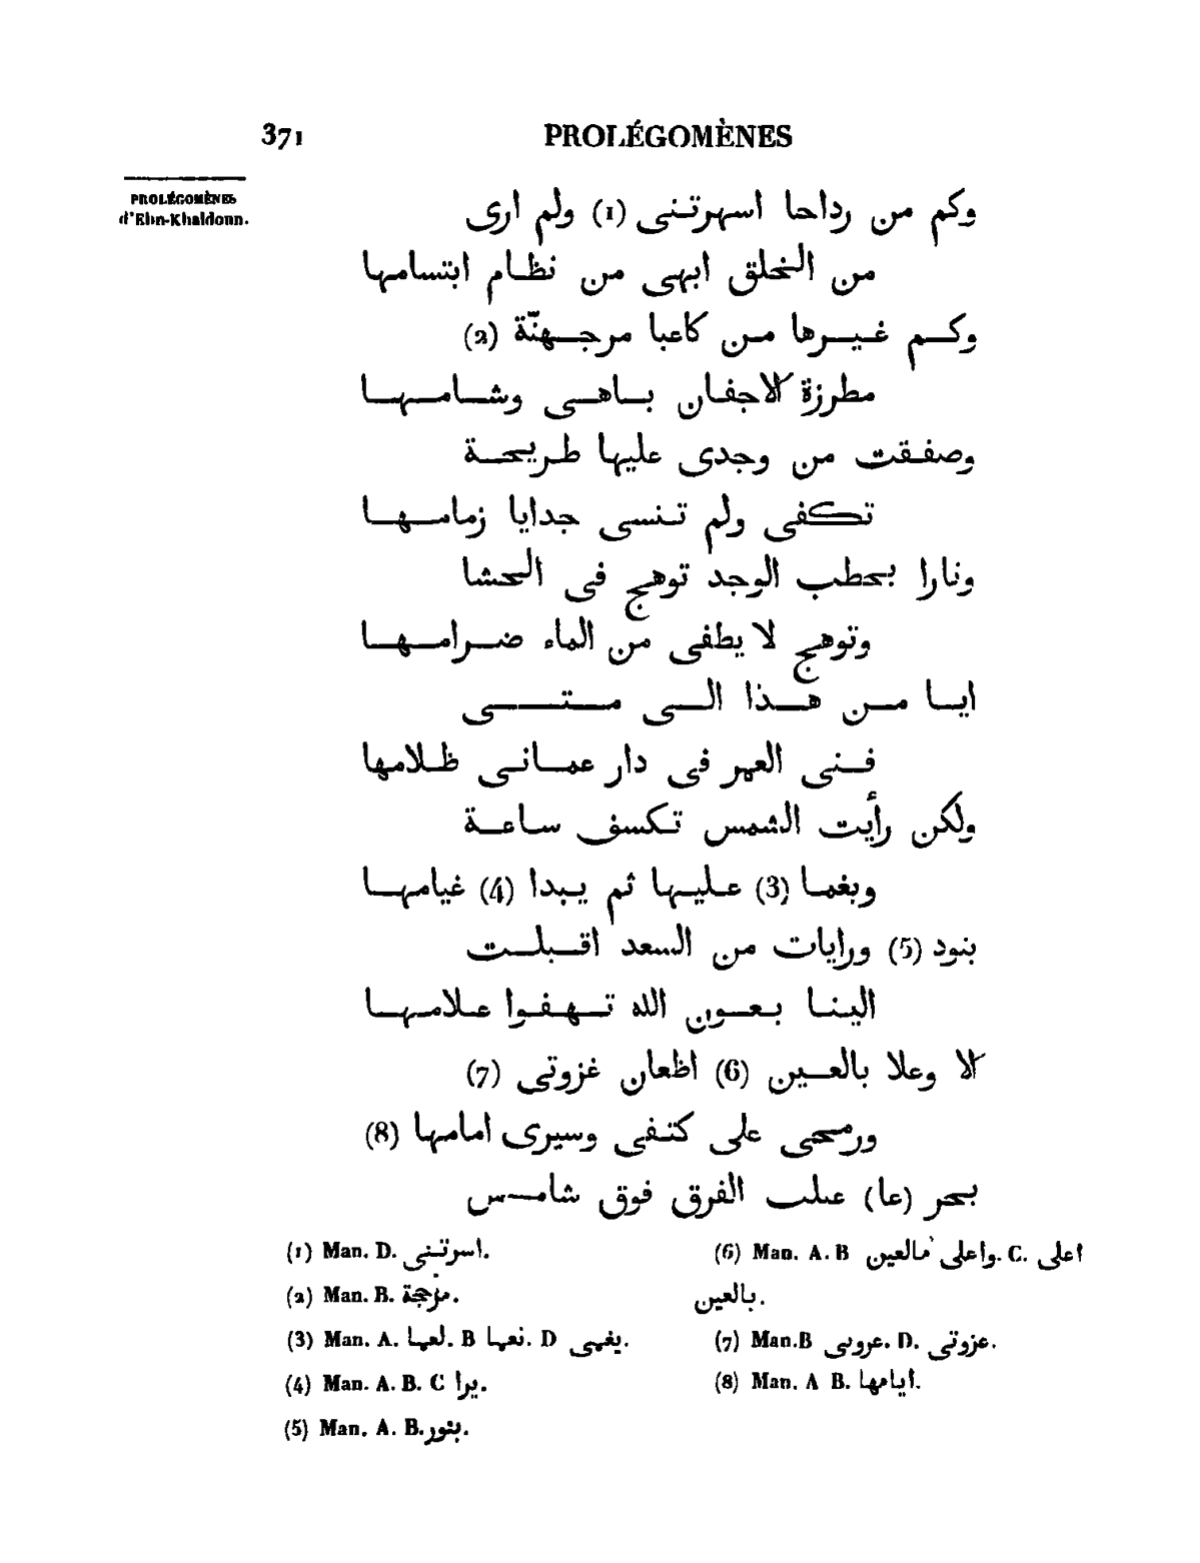 371 PROLÉGOMÈNES
PROLÉGOMÈNES
d'Ebn-Khaldoun.
وكم من رداحا اسهرتنى (1) ولم ارى
من الخلق ابهى من نظام ابتسامها
وكم غيرها من كاعبا مرجهنّة (2)
مطرزة الاجفان باهى وشامها
وصفقت من وجدى عليها طريحة
تكفى ولم تنسى جدايا زمامها
ونارا بحطب الوجد توهج فى الحشا
وتوهج لا يطفى من الماء ضرامها
ايا من هذا الى متى
فنى العمر فى دار عمانى ظلامها
ولكن رأيت الشمس تكسف ساعة
وبغما (3) عليها ثم يبدا (4) غيامها
بنود (5) ورايات من السعد اقبلت
الينا بعون الله تهفوا علامها
الا وعلا بالعين (6) اظعان غزوتى (7)
ورمحى على كتفى وسيرى امامها (8)
بحر (عا) علب الفرق فوق شامس
(1) Man. D. اسرتنى.
(2) Man. B. مزججة.
(3) Man. A. لعها. B نعها. D يغمى.
(4) Man. A. B. C يرا.
(5) Man. A. B. بنور.
(6) Man. A. B واعلى مالعين. C. اعلى
بالعين.
(7) Man.B عروبى. D. عزوتى.
(8) Man. A B. ايامها.